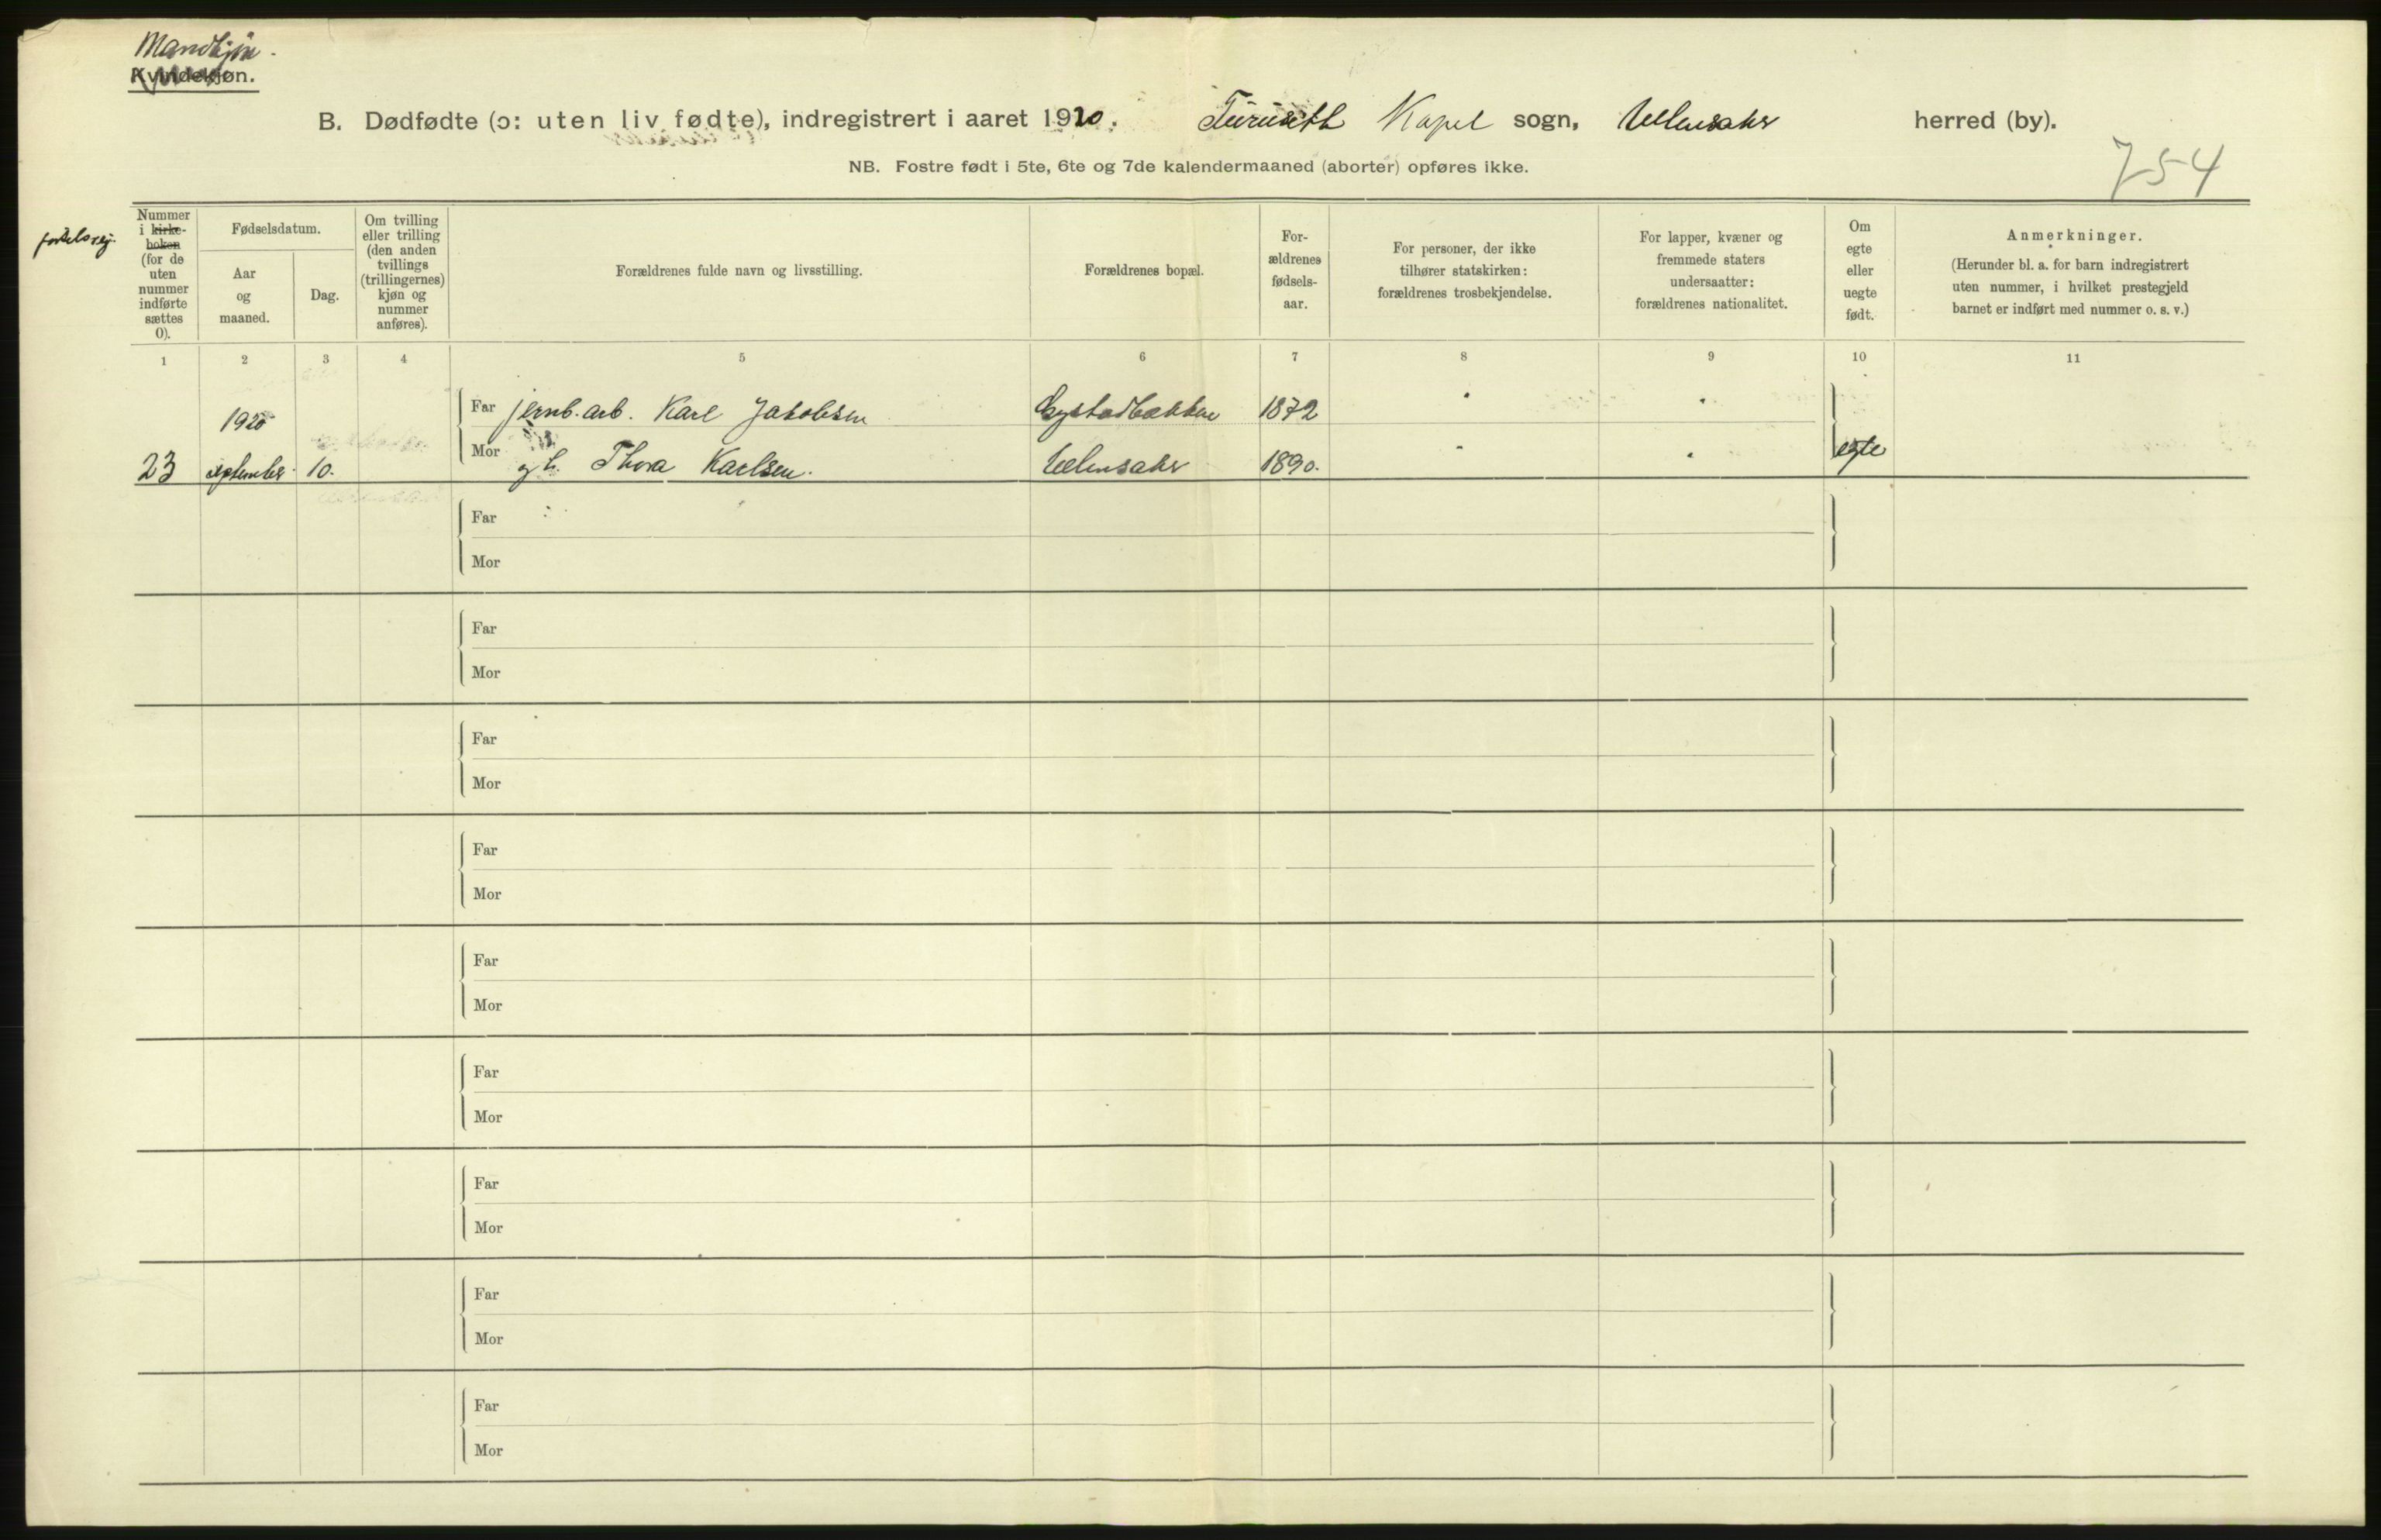 Mandkjøn.
Kvindekjøn.
B. Dødfødte (ɔ: uten liv fødte), indregistrert i aaret 1920. Furuseth Kapel sogn, Ullensaker herred (by).
NB. Fostre født i 5te, 6te og 7de kalendermaaned (aborter) opføres ikke.
754
fødselsrej.
Nummer
i kirke-
boken
(for de
uten
nummer
indførte
sættes
0).
Fødselsdatum.
Aar
og
maaned.
Dag.
Om tvilling
eller trilling
(den anden
tvillings
(trillingernes)
kjøn og
nummer
anføres).
Forældrenes fulde navn og livsstilling.
Forældrenes bopæl.
For-
ældrenes
fødsels-
aar.
For personer, der ikke
tilhører statskirken:
forældrenes trosbekjendelse.
For lapper, kvæner og
fremmede staters
undersaatter:
forældrenes nationalitet.
Om
egte
eller
uegte
født.
Anmerkninger.
(Herunder bl. a. for barn indregistrert
uten nummer, i hvilket prestegjeld
barnet er indført med nummer o. s. v.)
1 2 3 4 5 6 7 8 9 10 11
1920 Far jernb.arb. Karl Jakobsen Gystadbakken 1872
23 september 10. Mor g h. Thora Karlsen. Ullensaker 1890. egte
Far
Mor
Far
Mor
Far
Mor
Far
Mor
Far
Mor
Far
Mor
Far
Mor
Far
Mor
Far
Mor